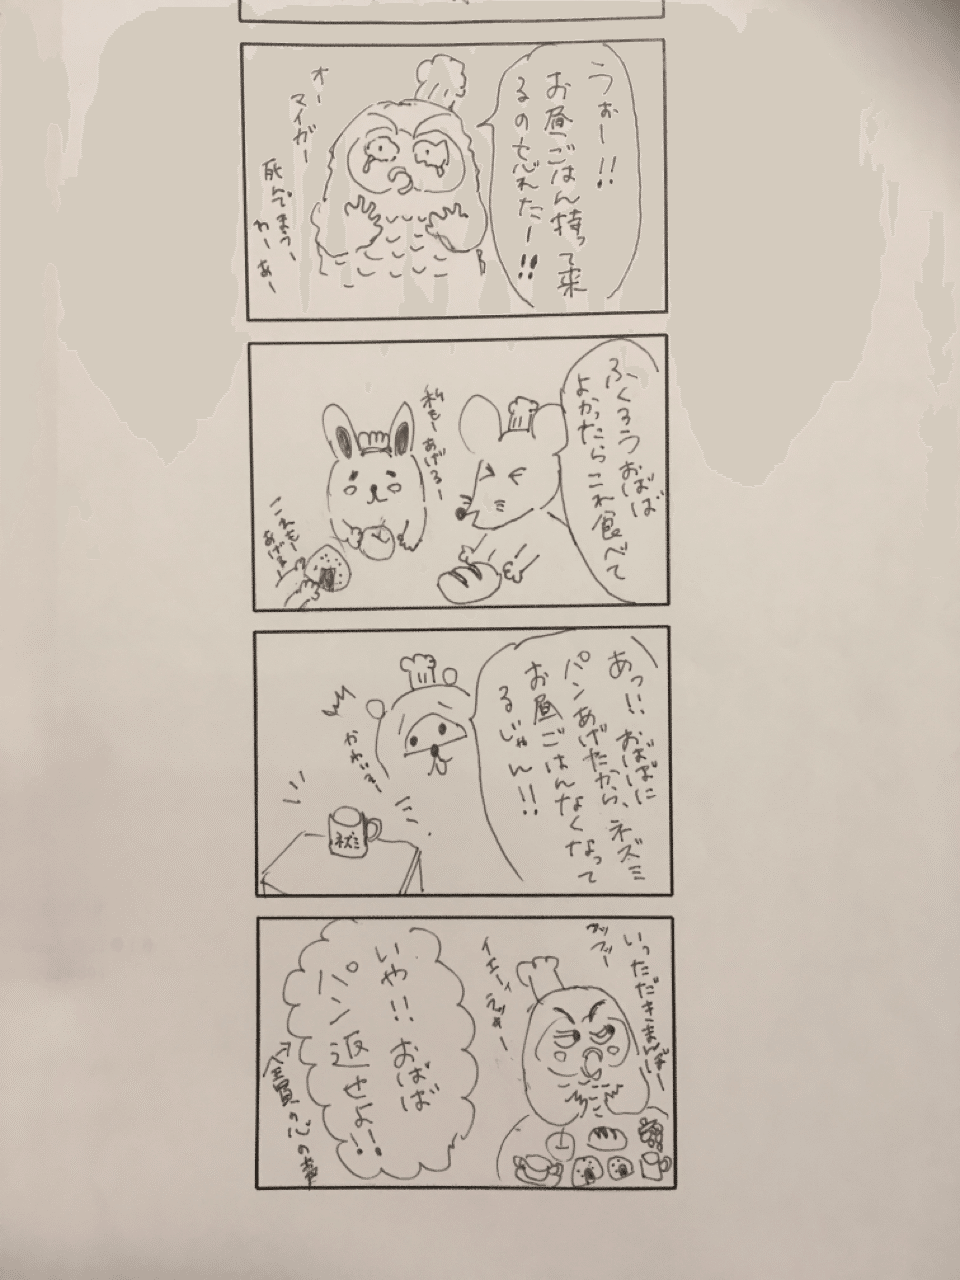 うぉー!!
お昼ごはん持って来
るの忘れたー!!
オー
マイガー
死んでまうー
わーぁー
ふくろうおばば
よかったらこれ食べて
私もーあげるー
これもー
あげるー
あっ!!おばばに
パンあげたから、ネズミ
お昼ごはんなくなって
るじゃん!!
かわいそー
ネズミ
いっただきまぁーー
イエーイ
いや!!おばば
パン返せよー!!
全員の心の声